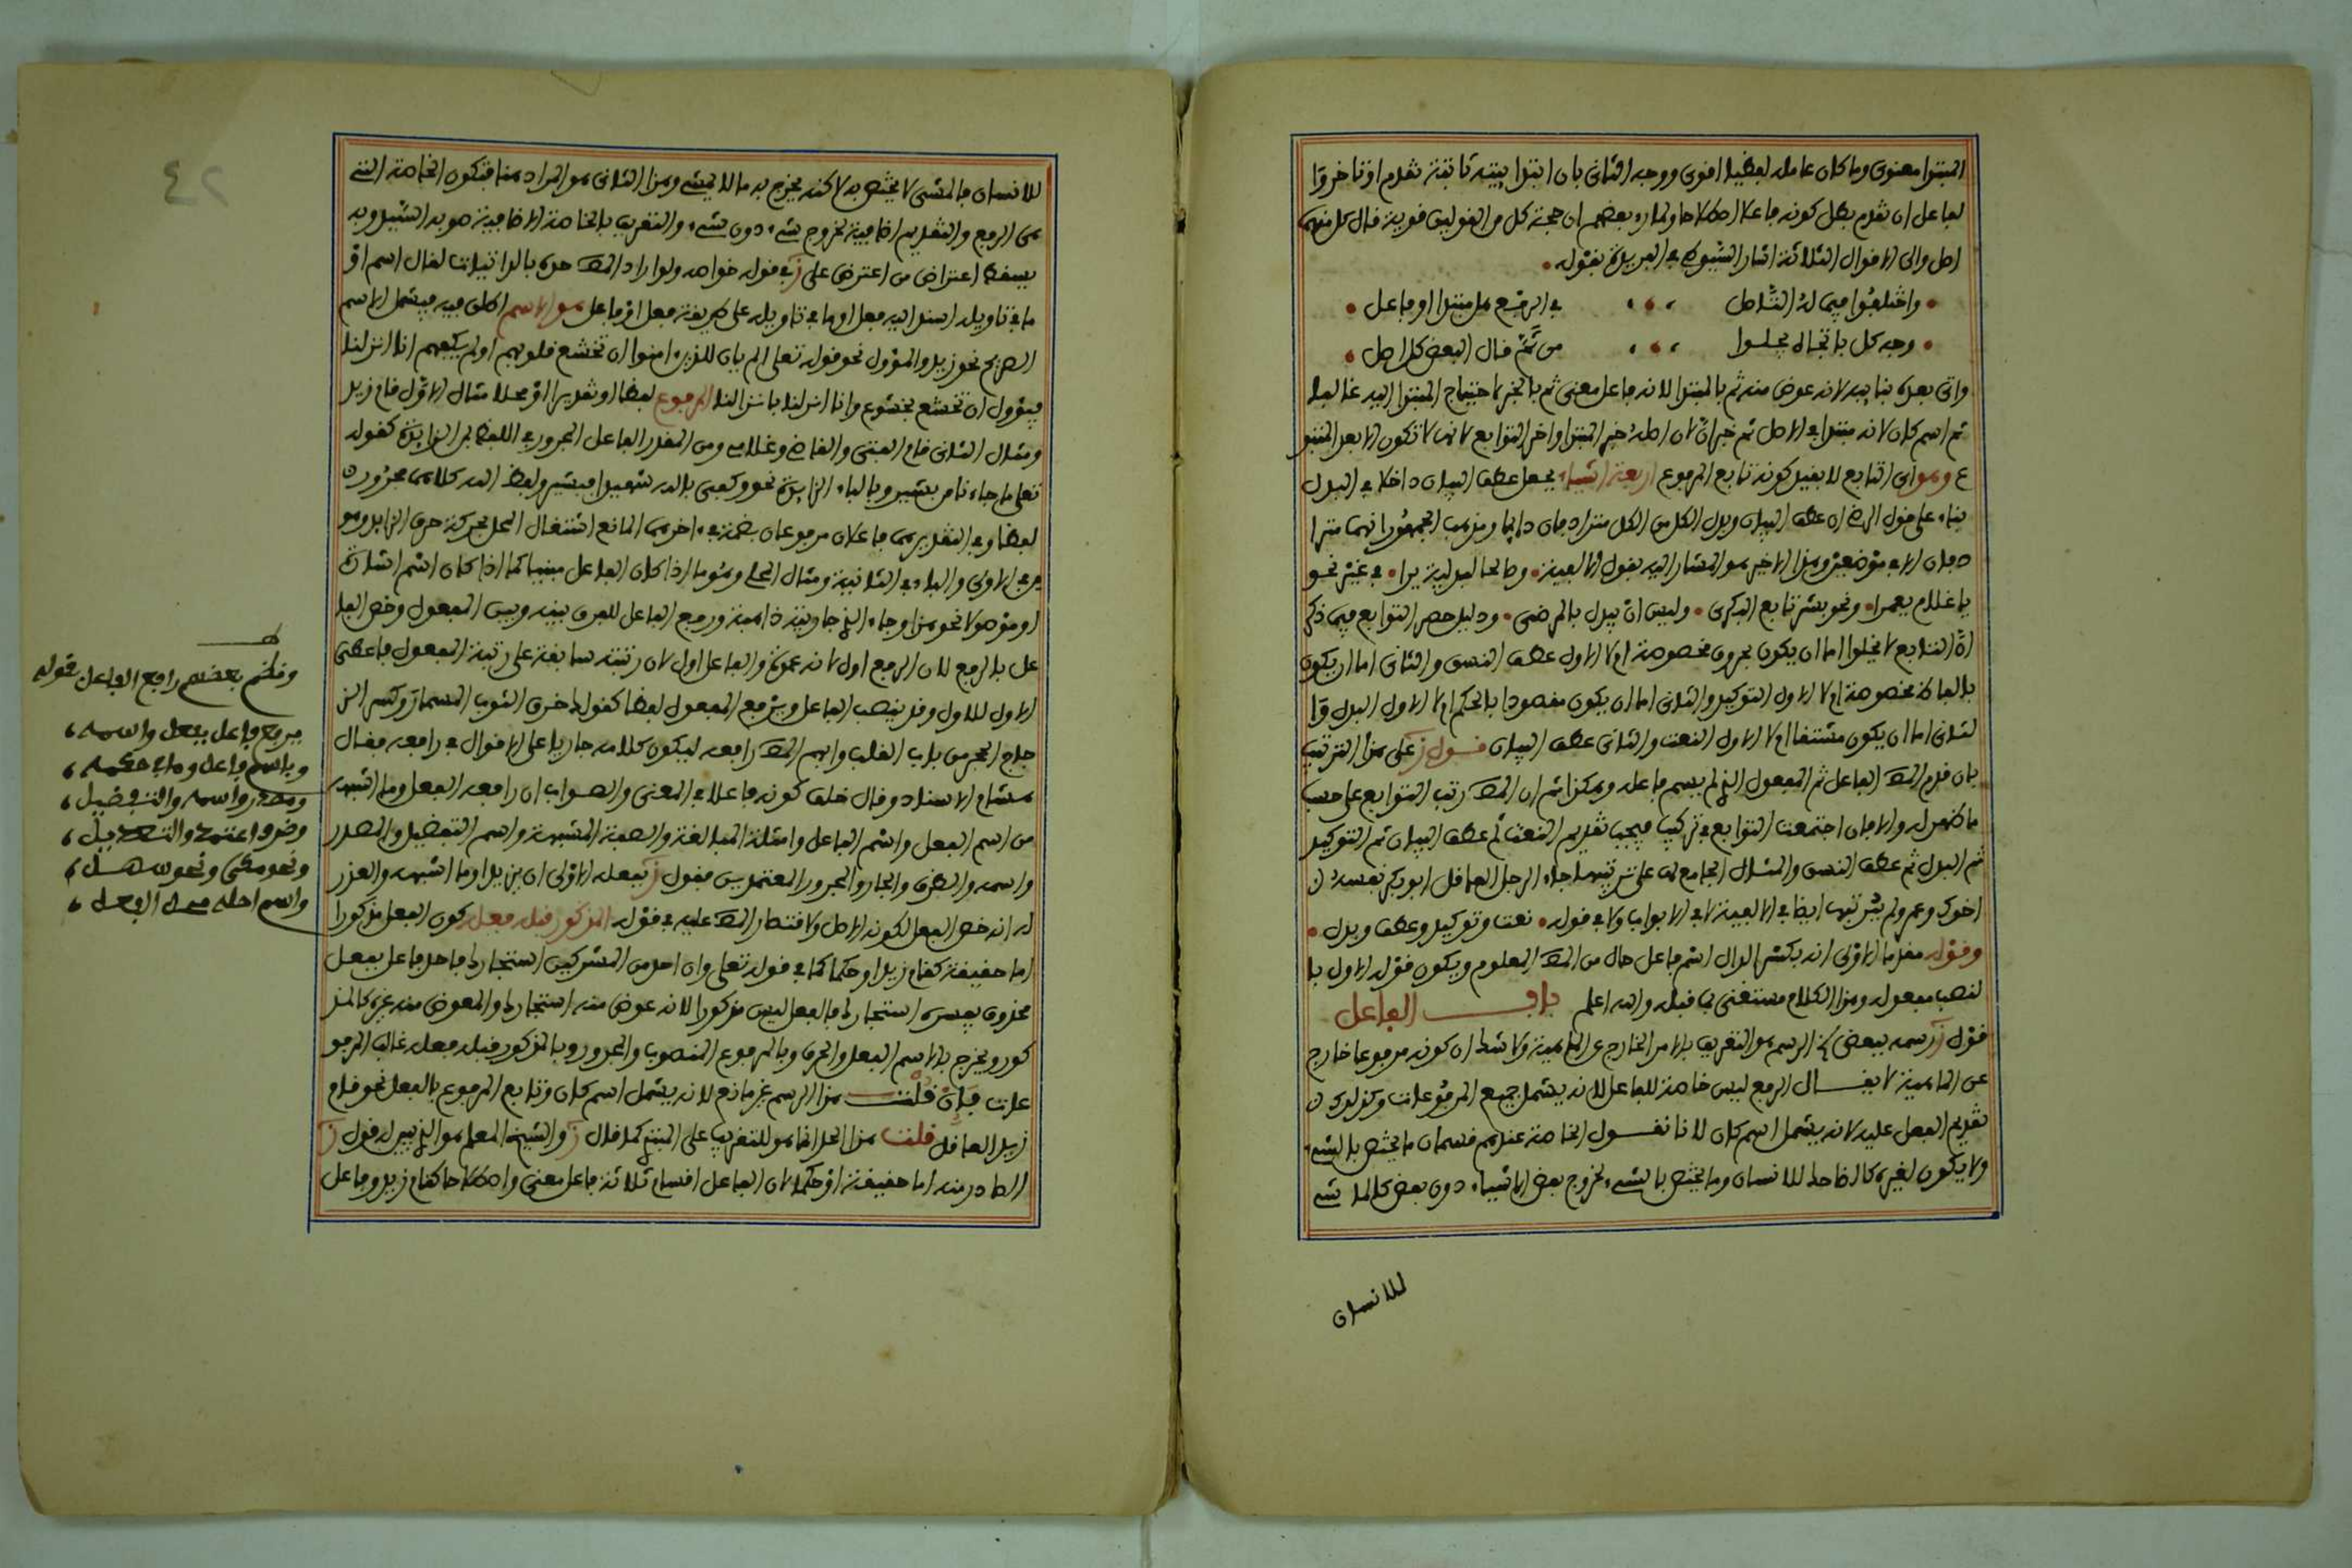 المبتدا معنوى وما كان عامله لفظيا اقوى ووجه الثانى بان المبتدا رتبته ثابتة تقدم او تاخر والـ
ـفاعل ان تقدم بطل كونه فاعلا اصطلاحا ولما رءا بعضهم ان حجة كل من القولين قوية قال كل منهما
اصل والى الاقوال الثلاثة اشار السيوطى فى الفريدة بقوله
واختلفوا فيما له التأصل فى الرفع هل مبتدا او فاعل
وجه كل باتجاه يجلوا من ثم قال البعض كل اصل
واتى بعده بنايبه لانه عوض منه ثم بالمبتدا لانه فاعل معنى ثم بالخبر لاحتياج المبتدا اليه غالبا
ثم اسم كان لانه مبتدا فى الاصل ثم خبر ان لان اصله خبر المبتدا واخر التوابع لانها لا تكون الا بعد المتبو
ع وهو اى التابع لا بقيد كونه تابع المرفوع اربعة اشياء بجعل عطف البيان داخلا فى البدل
بناء على قول الرضى ان عطف البيان وبدل الكل من الكل مترادفان دايما ومذهب الجمهور انهما مترا
دفان الا فى موضعين وهذا الاخير هو المشار اليه بقول الالفية وصالحا لبدلية يرا فى غير نحو
يا غلام يعمرا ونحو بشر تابع البكرى وليس ان يبدل بالمرضى ودليل حصر التوابع فيما ذكر
ان التابع لا يخلوا اما ان يكون بحروف مخصوصة ام لا الاول عطف النسق والثانى اما ان يكون
بالفاظ مخصوصة ام لا الاول التوكيد والثانى اما ان يكون مقصودا بالحكم ام لا الاول البدل والـ
ـثانى اما ان يكون مشتقا ام لا الاول النعت والثانى عطف البيان قول ز على هذا الترتيب
بان قدم المص الفاعل ثم المفعول الذى لم يسم فاعله وهكذا ثم ان المص رتب التوابع على حسب
ما ظهر له والا فان اجتمعت التوابع فى تركيب فيجب تقديم النعت ثم عطف البيان ثم التوكيد
ثم البدل ثم عطف النسق والمثال الجامع لها على ترتيبها جاء الرجل الفاضل ابو بكر نفسه
اخوك وعمر ولم يرتبها ايضا فى الالفية لا فى الابواب ولا فى قوله نعت وتوكيد وعطف وبدل
وقوله مقدما الاولى انه بكسر الدال اسم فاعل حال من المص المعلوم ويكون قوله الاول با
لنصب مفعوله وهذا الكلام مستغنى بما قبله والله اعلم باب الفاعل
قول ز رسمه ببعض الرسم هو التعريف بالامر الخارج عن الماهية ولا شك ان كونه مرفوعا خارج
عن الماهية لا يقال الرفع ليس خاصة للفاعل لانه يشمل جميع المرفوعات وكذلك
تقديم الفعل عليه لانه يشمل اسم كان لانا نقول الخاصة عندهم قسمان ما يختص بالشىء
ولا يكون لغيره كالضاحك للانسان وما يختص بالشىء لخروج بعض الاشياء دون بعض كالماشى
للانسان
للانسان فالمشى لا يختص به لاكنه يخرج به ما لا يمشى وهذا الثانى هو المراد هنا فتكون الخاصة التى
هى الرفع والتقديم اضافية لخروج شىء دون شىء والتعريف بالخاصة الاضافية صوبه السيد وبه
يسقط اعتراض من اعترض على ز فى قوله خواصه ولو اراد المص حده بالذاتيات لقال اسم او
ما فى تاويله اسند اليه فعل او ما فى تاويله على طريقة فعل او فاعل هو الاسم اطلق فيه فيشمل الاسم
الصريح نحو زيد والمؤول نحو قوله تعلى الم يان للذين امنوا ان تخشع قلوبهم اولم يكفهم انا انزلنا
فيؤول ان تخشع بخشوع وانا انزلنا بانزالنا المرفوع لفظا او تقديرا او محلا مثال الاول قام زيد
ومثال الثانى قام الفتى والقاضى وغلامى ومن المقدر الفاعل المجرور فى اللفظ بمن الزايدة كقوله
تعلى ما جاءنا من بشير وبالباء الزايدة نحو وكفى بالله شهيدا فبشير ولفظ الله كلاهما مجرور
لفظا وفى التقدير هما فاعلان مرفوعان بضمة فى اخرهما المانع اشتغال المحل بحركة حرف الزايد وهو
من فى الاولى والباء فى الثانية ومثال المحل وهو ما اذا كان الفاعل مبنيا كما اذا كان اسم اشارة
او موصولا نحو هذا وجاء الذى جاوبته ذاهبة ورفع الفاعل للفرق بينه وبين المفعول وخص الفا
عل بالرفع لان الرفع اول لانه عمدة والفاعل اول لان رتبته سابقة على رتبة المفعول فاعطى
الاول للاول وقد ينصب الفاعل ويرفع المفعول لفظا كقولهم خرق الثوب المسمار وكسر الز
جاج الحجر من باب القلب وابهم المص رافعه ليكون كلامه جاريا على الاقوال فى رافعه فقال
هشام الاسناد وقال خلف كونه فاعلا فى المعنى والصواب ان رافعه الفعل وما اشبهه
من اسم الفعل واسم الفاعل وامثلة المبالغة والصفة المشبهة واسم التفضيل والمصدر
واسمه والظرف والجار والمجرور المعتمدين فقول ز بفعله الاولى ان يزيد او ما اشبهه والعذر
له انه خص الفعل لكونه الاصل ولاقتصار المص عليه فى قوله المذكور قبله فعله كون الفعل مذكورا
اما حقيقة كقام زيد او حكما كما فى قوله تعلى وان احد من المشركين استجارك فاحد فاعل بفعل
محذوف يفسره استجارك فالفعل ليس مذكورا لانه عوض منه استجارك والمعوض منه غيره كالمذ
كور ويخرج بالاسم الفعل والحرف وبالمرفوع المنصوب والمجرور وبالمذكور قبله فعله غالب المرفو
عات فإن قلت هذا الرسم غير مانع لانه يشمل اسم كان وتابع المرفوع بالفعل نحو قام
زيد العاقل قلت هذا الحد انما هو للتقريب على المبتدى كما قال ز والشيخ المعلم هو الذى يبين له قول ز
الصادر منه اما حقيقة او حكما لان الفاعل اقسام ثلاثة فاعل معنى واصطلاحا كقام زيد وفاعل
ونظم بعضهم رافع الفاعل بقوله
يرفع فاعل بفعل واسمه
وباسم فاعل وما فى حكمه
ومصدر واسمه والتفضيل
ونحو مكى ونحو سهل